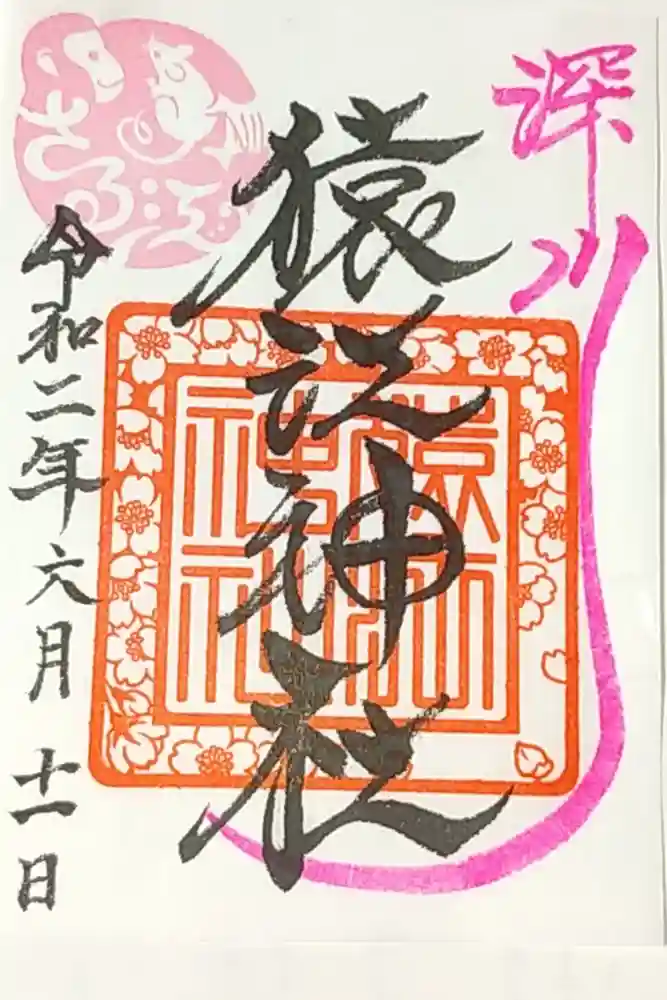 深川
猿江神社
猿江神社
令和二年六月十一日
さる江